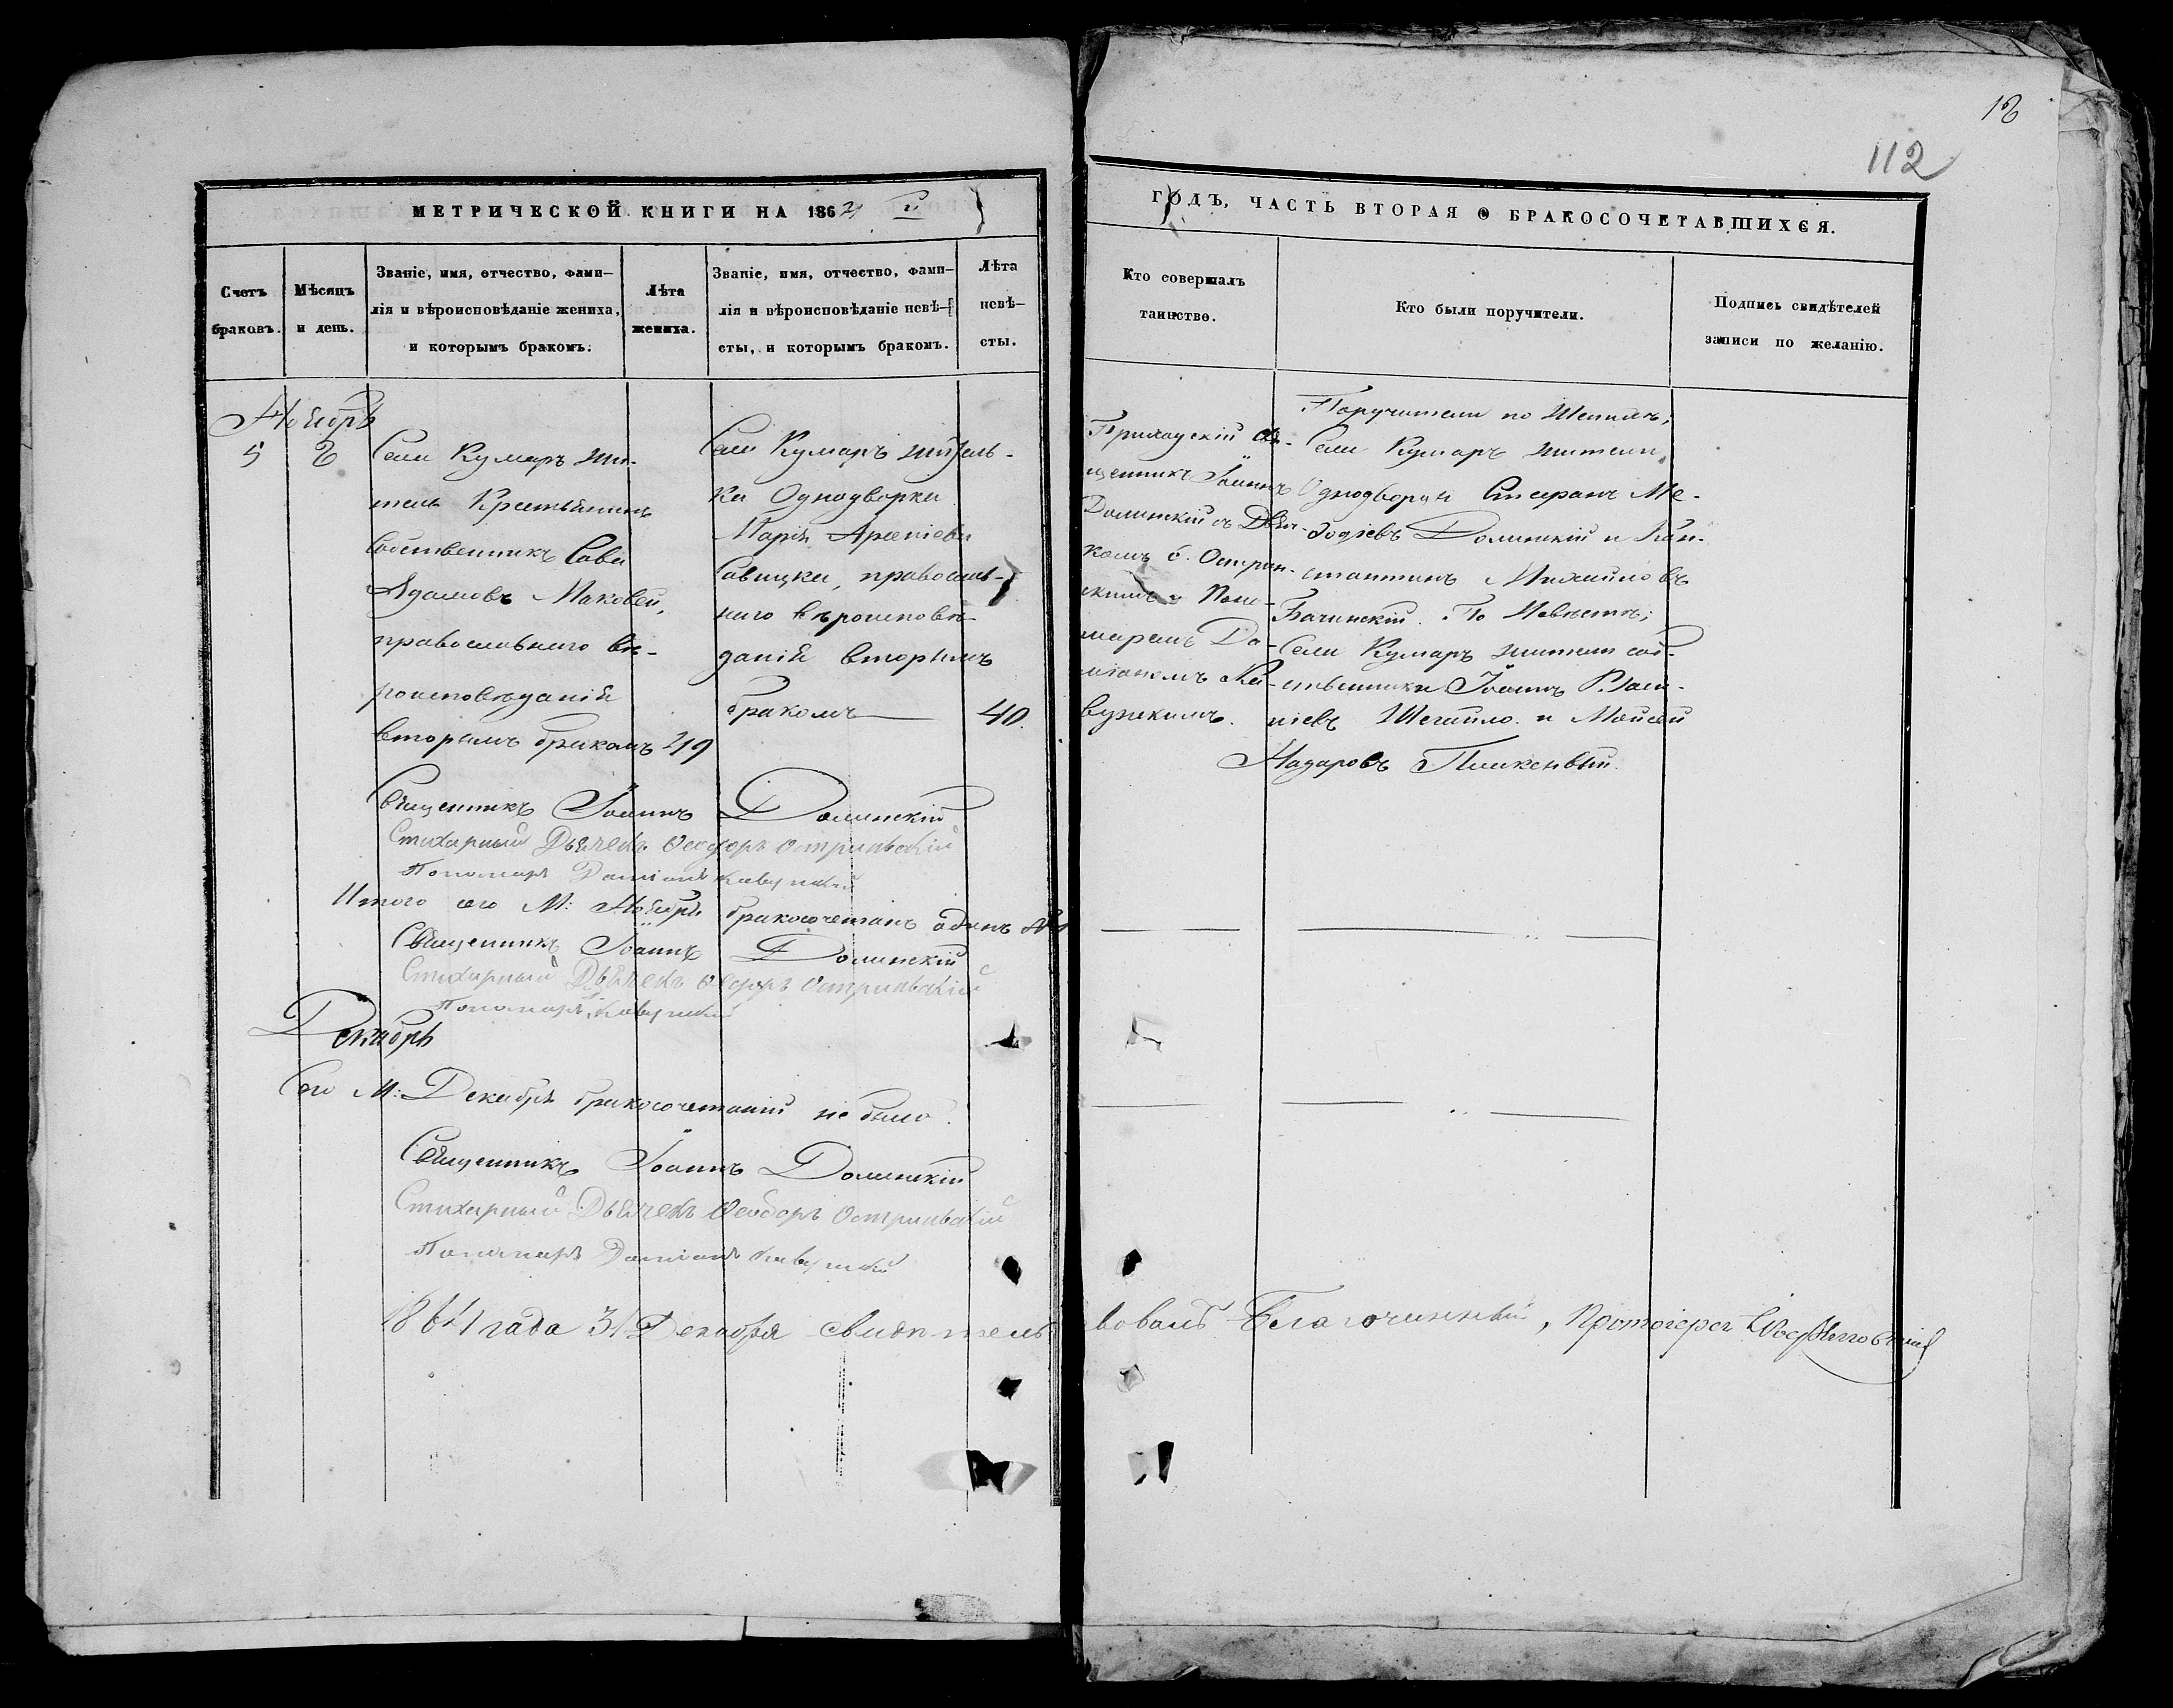 18
112
МЕТРИЧЕСКОЙ КНИГИ НА 1864 й
ГОДЪ, ЧАСТЬ ВТОРАЯ О БРАКОСОЧЕТАВШИХСЯ.
Счетъ
браковъ.
Мѣсяцъ
и день.
Званіе, имя, отчество, фами-
лія и вѣроисповѣданіе жениха,
и которымъ бракомъ.
Лѣта
жениха.
Званіе, имя, отчество, фами-
лія и вѣроисповѣданіе невѣ-
сты, и которымъ бракомъ.
Лѣта
невѣ-
сты.
Кто совершалъ
таинство.
Кто были поручители.
Подпись свидѣтелей
записи по желанію.
Ноябрь
5
8
Села Кумаръ жи-
тель Крестьянинъ
Собственникъ Сава
Адамовъ Маковей,
православнаго вѣ-
роисповѣданія
вторымъ бракомъ 49
Села Кумаръ житель-
ка Однодворка
Марія Арсеніева
Савицка, православ-
наго вѣроисповѣ-
данія вторымъ
бракомъ 40.
Приходскій Свя-
щенникъ Іоаннъ
Долинскій съ Дьяч-
комъ Ѳ. Остров-
скимъ и Поно-
маремъ Да-
міаномъ Ка-
вунскимъ.
Поручители по Женихѣ;
Села Кумаръ жители
Однодворцы Стефанъ Ме-
ѳодіевъ Долинскій и Кон-
стантинъ Михайловъ
Бачинскій. По Невѣстѣ;
Села Кумаръ жители соб-
ственники Іоаннъ
Шегайло и Моисей
Назаровъ
Священникъ Іоаннъ Долинскій
Стихарный Дьячекъ Ѳеодоръ
Пономарь Даміанъ Кавунскій
Итого сего М: Ноября бракосочетанъ одинъ №1
Священникъ Іоаннъ Долинскій
Стихарный Дьячекъ Ѳеодоръ
Пономарь Кавунскій
Декабрь
Сего М: Декабря бракосочетаній не было.
Священникъ Іоаннъ Долинскій
Стихарный Дьячекъ Ѳеодоръ
Пономарь Даміанъ Кавунскій
1864 года 31 Декабря свидѣтельствовалъ Благочинный, Протоіерей